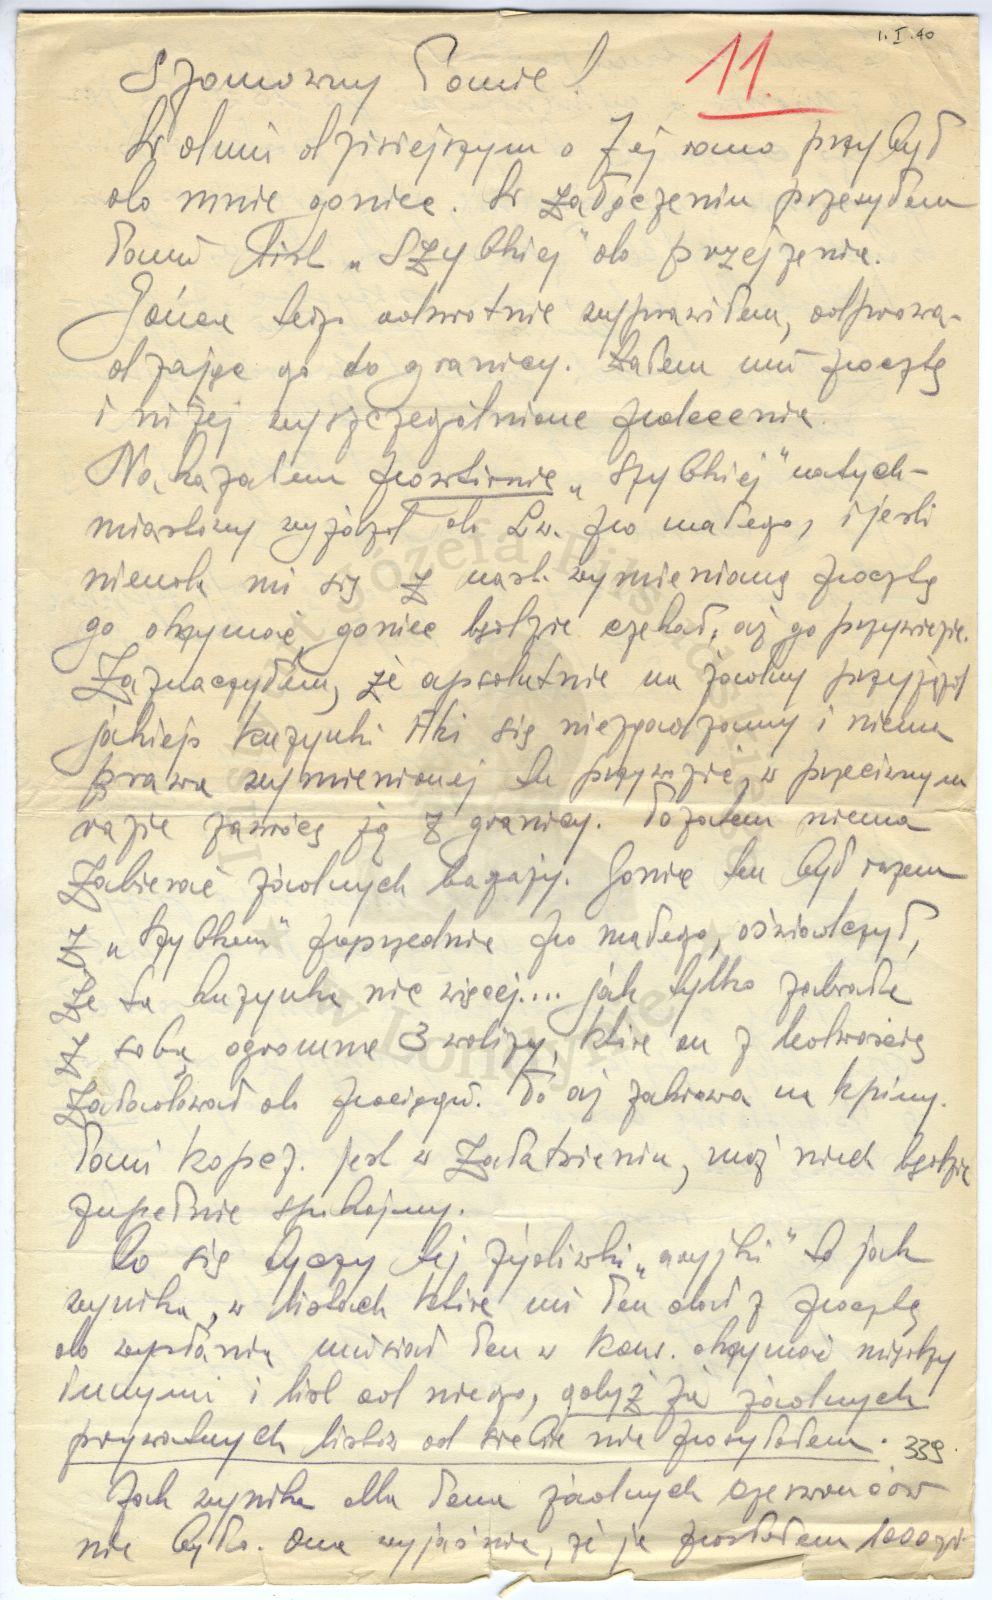 1.I.40
11.
Szanowny Panie!
W dniu dzisiejszym o 7ej rano przybył
do mnie goniec. W załączeniu przesyłam
Panu list „Szybkiej" do przejrzenia.
Gońca tego odwrotnie wyprawiłem, odprowa-
dzając go do granicy. Dałem mu pocztę
i niżej wyszczególnione polecenia.
Nakazałem powtórnie „Szybkiej" natych-
miastowy wyjazd do Lw. po małego, i jeśli
nieuda mi się z nast. wymienioną pocztą
go otrzymać, goniec będzie czekał, aż go przywiezie.
Zaznaczyłem, że apsolutnie na żadny przyjazd
jakiejś kuzynki Aki się niezgadzamy i niema
prawa wymienionej tu przywozić, w przeciwnym
razie zawrócę ją z granicy. Pozatem niema
zabierać żadnych bagaży. Goniec ten był razem
z „Szybkim" poprzednio po małego, oświadczył,
że ta kuzynka nic więcej.... jak tylko zabrała
z sobą ogromne 3 walizy, które on z łatwością
załadował do pociągu. To aż zakrawa na kpiny.
Pani Kopeć. jest w załatwieniu, mąż niech będzie
zupełnie spokojny.
Co się tyczy tej żydówki „aryjki" to jak
wynika, w listach które mi Pan dał z pocztą
do wysłania musiał Pan w kow. otrzymać między
innymi i list od niego, gdyż ja żadnych
prywatnych listów od siebie nie posyłałem.
339.
Jak wynika dla Pana żadnych czerwońców
nie było. Ona wyjaśnia, że ja posłałem 1000 zł.